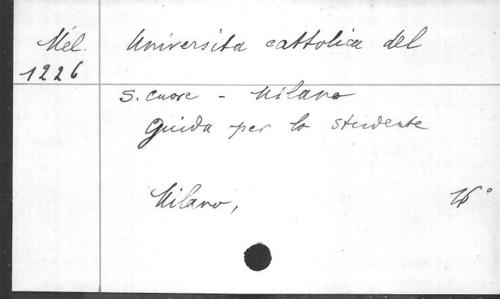 Mél. Universita cattolica del
1226
S. Cuore - Milano
Guida per lo studente
Milano, 16°